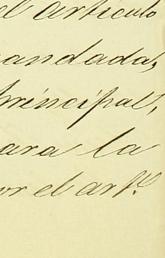 el articulo
andada,
principal,
para la
or el art.º